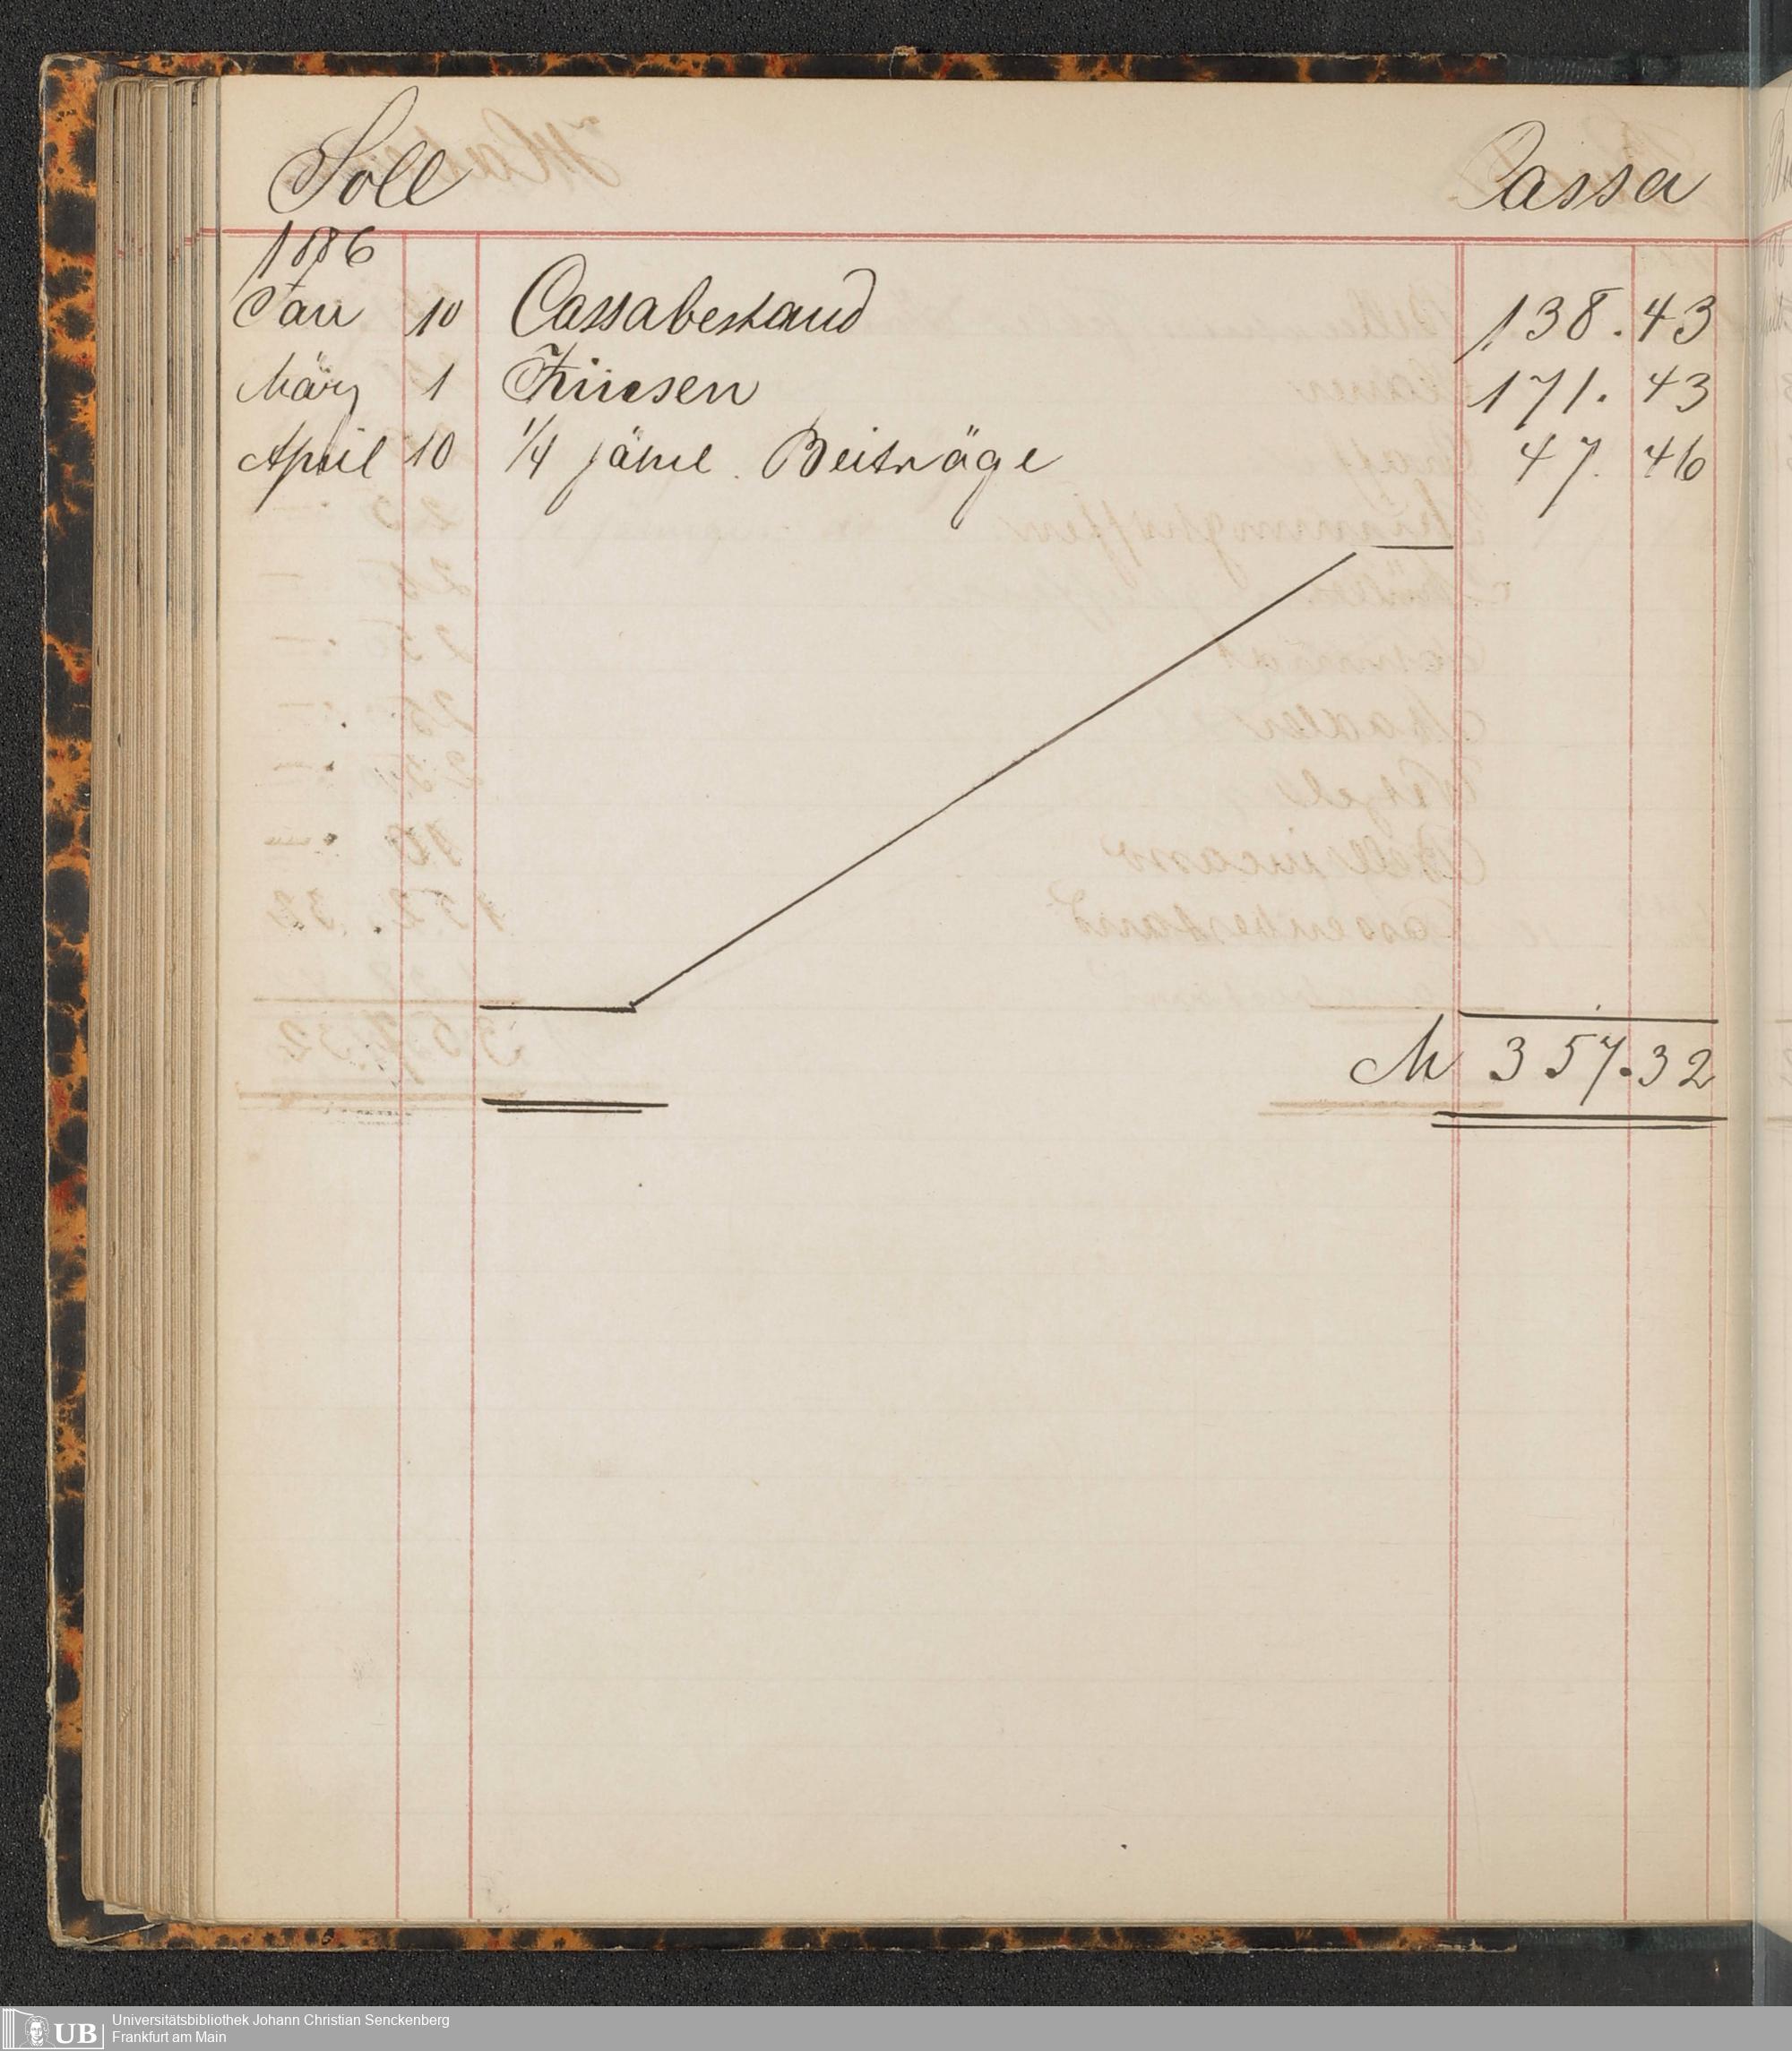 Soll Cassa
1886
Jan 10 Cassabestand 138.43
März 1 Zinsen 171.43
April 10 1/4 jährl. Beiträge 47.46
M 357.32
UB Universitätsbibliothek Johann Christian Senckenberg
Frankfurt am Main